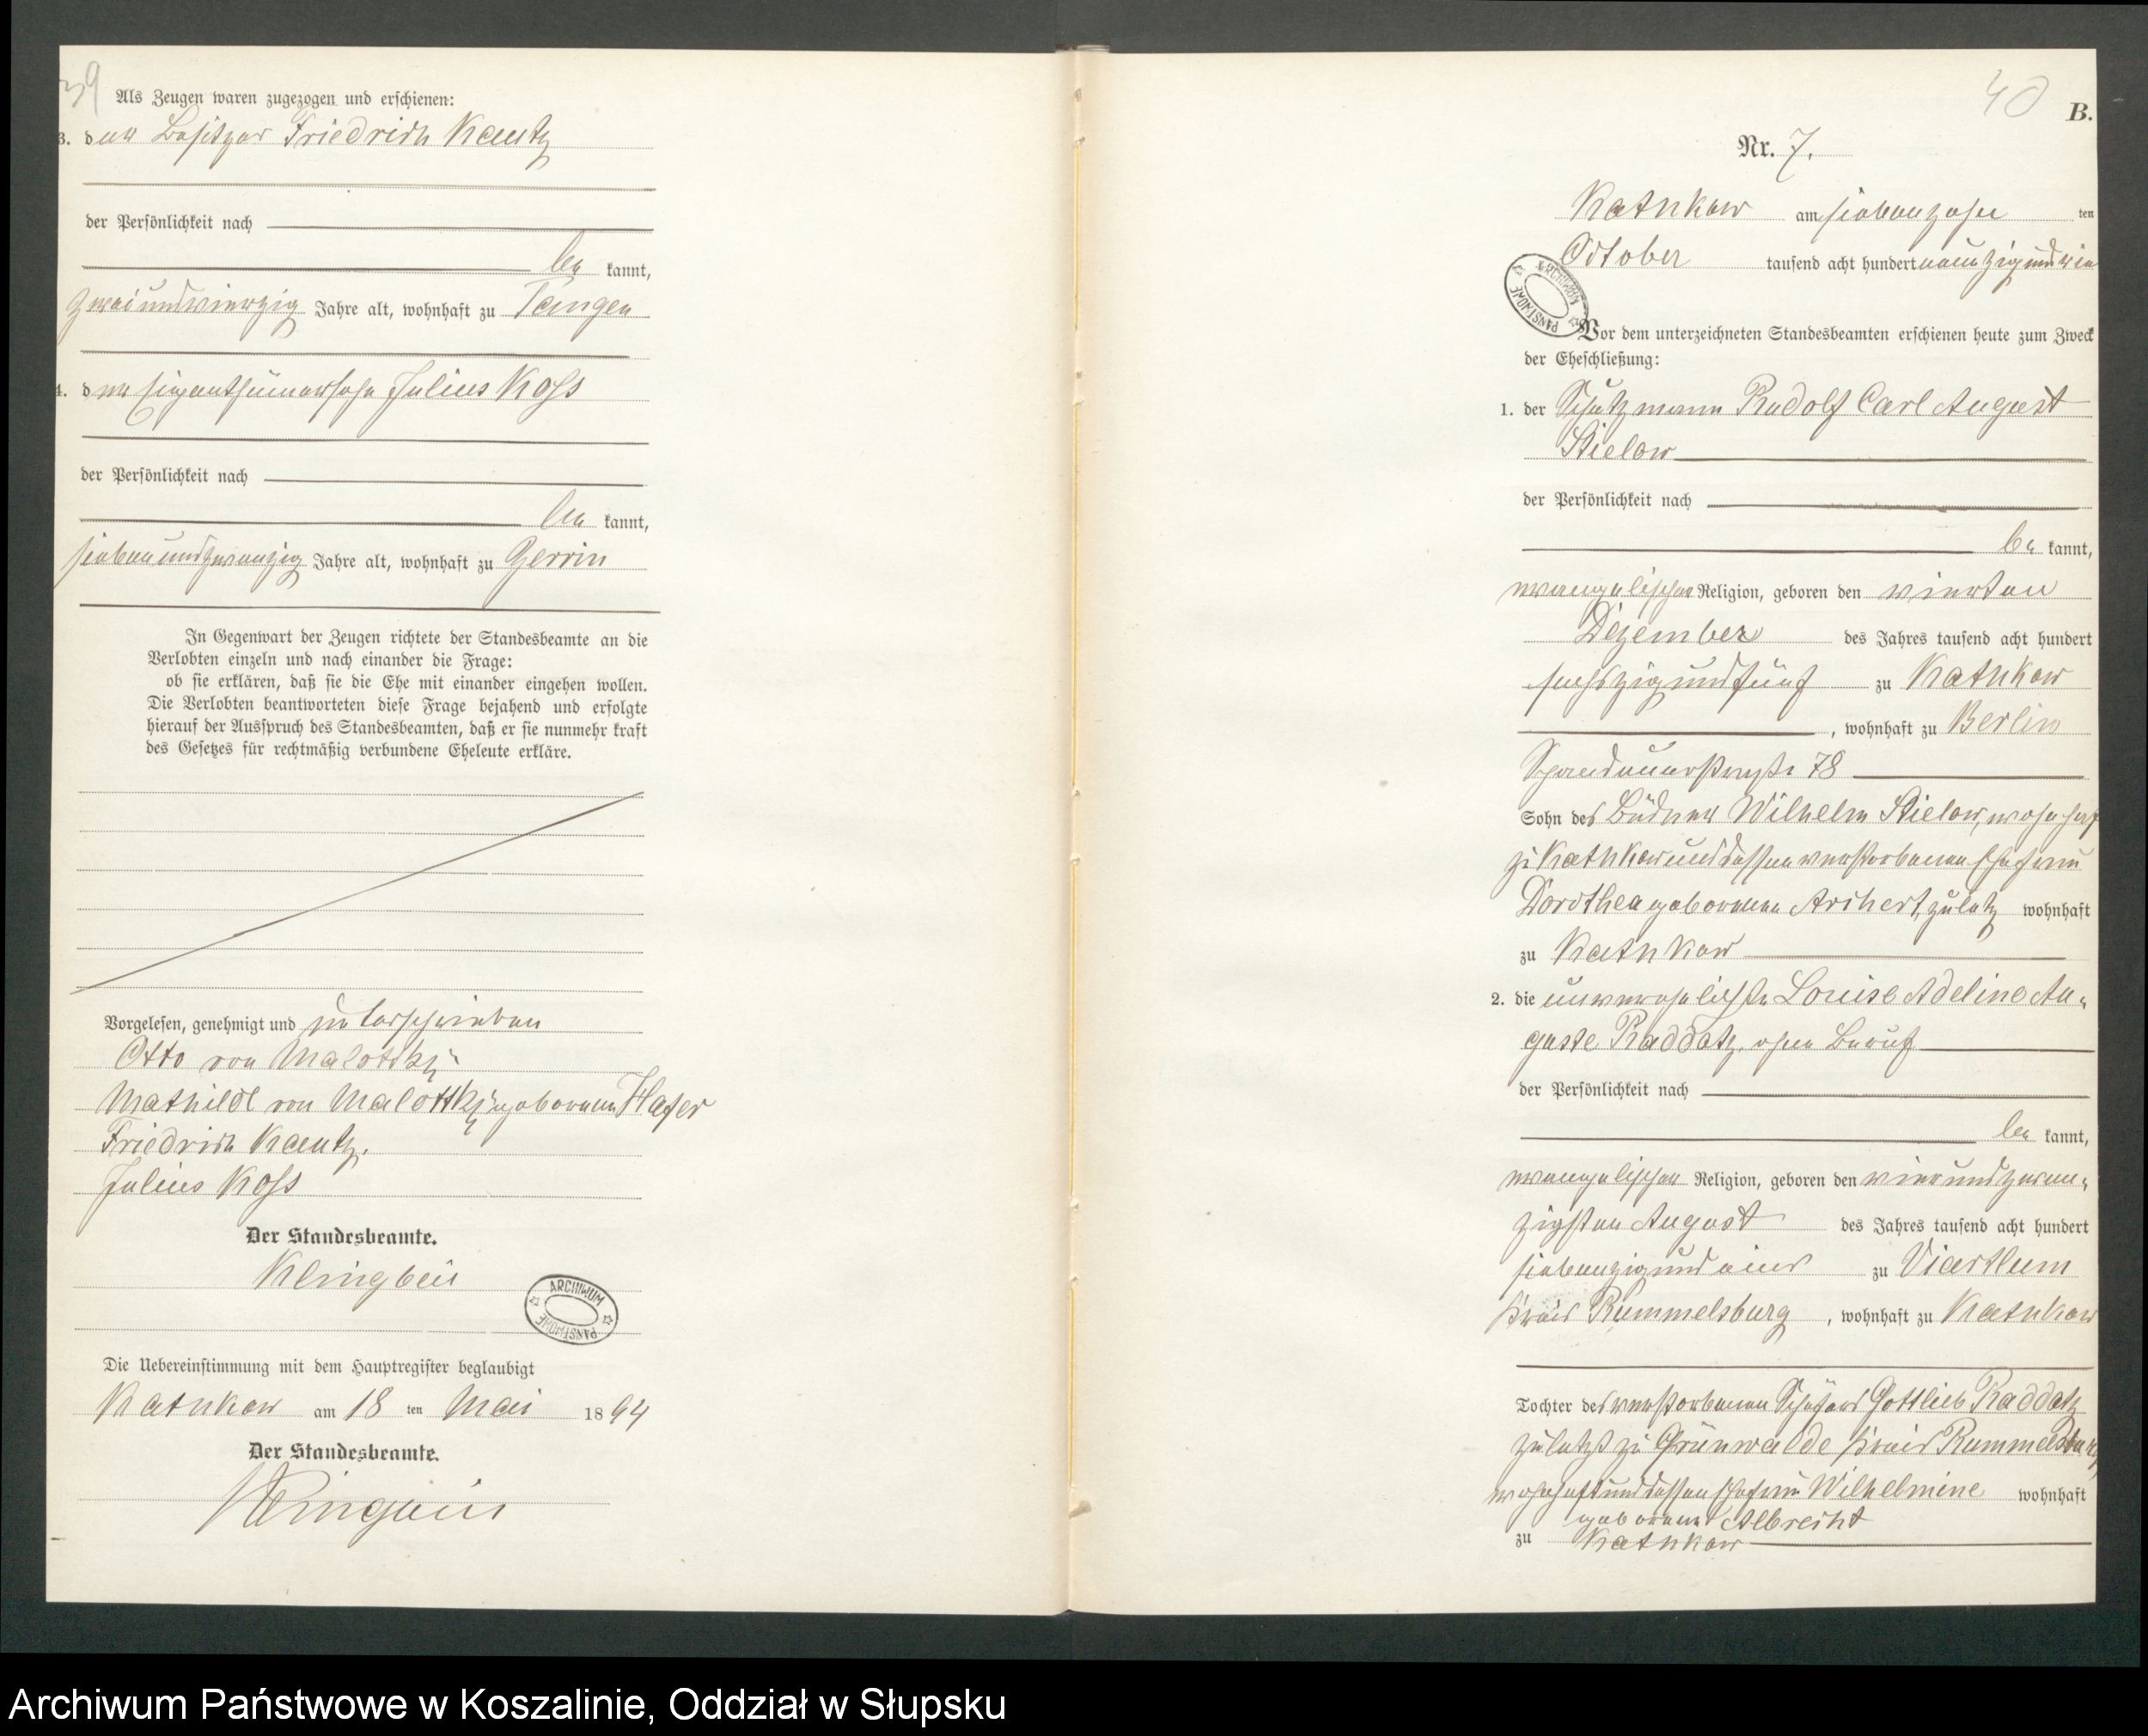 39
Als Zeugen waren zugezogen und erschienen:
3. der Besitzer Friedrich Kautz
der Persönlichkeit nach
be kannt,
zweiundvierzig Jahre alt, wohnhaft zu Tangen
4. der Eigenthümersohn Julius Koss
der Persönlichkeit nach
be kannt,
siebenundzwanzig Jahre alt, wohnhaft zu Gerrin
In Gegenwart der Zeugen richtete der Standesbeamte an die
Verlobten einzeln und nach einander die Frage:
ob sie erklären, daß sie die Ehe mit einander eingehen wollen.
Die Verlobten beantworteten diese Frage bejahend und erfolgte
hierauf der Ausspruch des Standesbeamten, daß er sie nunmehr kraft
des Gesetzes für rechtmäßig verbundene Eheleute erkläre.
Vorgelesen, genehmigt und unterschrieben
Otto von Malottky
Mathilde von Malottky geborene Hafer
Friedrich Kautz.
Julius Koss
Der Standesbeamte.
Klingbeil
ARCHIWUM PAŃSTWOWE
Die Uebereinstimmung mit dem Hauptregister beglaubigt
Kathkow am 18 ten Mai 1894
Der Standesbeamte.
Klingbeil
40
B.
Nr. 7.
Kathkow am siebenzehn ten
October tausend acht hundert neunzig und vier
ARCHIWUM PAŃSTWOWE
Vor dem unterzeichneten Standesbeamten erschienen heute zum Zweck
der Eheschließung:
1. der Schutzmann Rudolf Carl August
Stielow
der Persönlichkeit nach
be kannt,
evangelischer Religion, geboren den vierten
Dezember des Jahres tausend acht hundert
sechszig und fünf zu Kathkow
, wohnhaft zu Berlin
Spandauerstraße 78
Sohn des Büdner Wilhelm Stielow, wohnhaft
zu Kathkow und dessen verstorbenen Ehefrau
Dorothea geborenen Archert, zuletz wohnhaft
zu Kathkow
2. die unverehelichte Louise Adeline Au-
guste Raddatz, ohne Beruf
der Persönlichkeit nach
be kannt,
evangelischer Religion, geboren den vierundzwan-
zigsten August des Jahres tausend acht hundert
siebenzig und eins zu Viartlum
Kreis Rummelsburg , wohnhaft zu Kathkow
Tochter des verstorbenen Schäfers Gottlieb Raddatz
zuletzt zu Grünwalde Kreis Rummelsburg
wohnhaft und dessen Ehefrau Wilhelmine wohnhaft
geborene Albrecht
zu Kathkow
Archiwum Państwowe w Koszalinie, Oddział w Słupsku